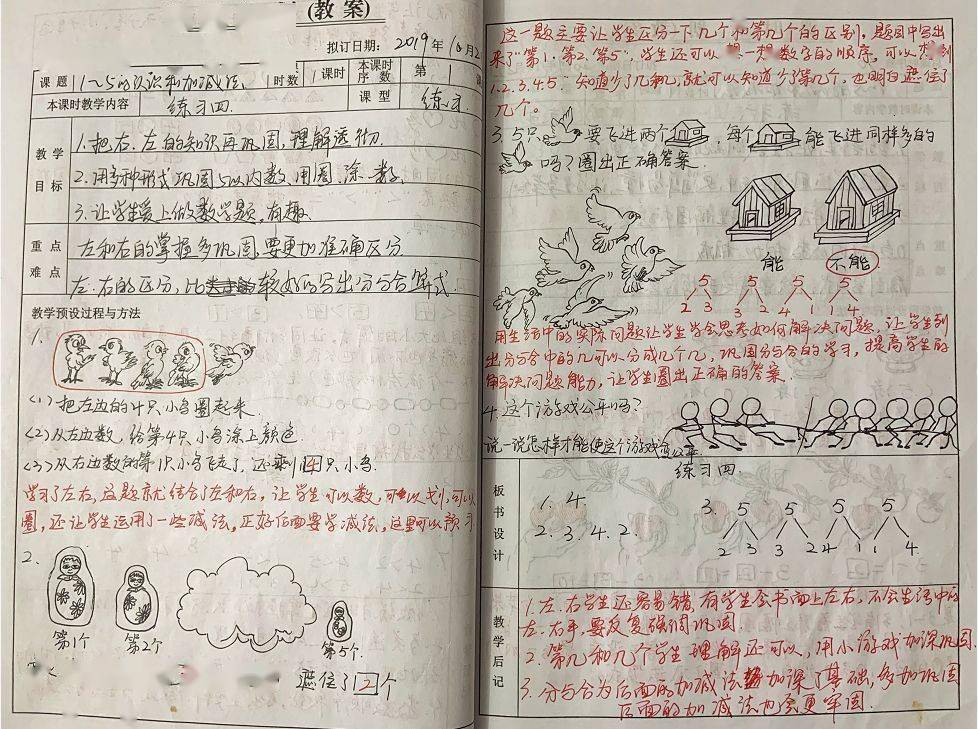 (教 案)
拟订日期： 2019年10月2
课题 1～5的认识和加减法 时数 1课时 本课时序数 第 1
本课时教学内容 练习四. 课型 练习.
教学目标
1.把右、左的知识再巩固,理解透彻.
2.用多种形式巩固5以内数,用圈、涂、数.
3.让学生爱上做数学题,有趣.
重点 左和右的掌握多巩固,要更加准确区分
难点 左、右的区分,比较好的写出分与合算式.
教学预设过程与方法
1.
(1)把左边的4只小鸟圈起来.
(2)从左边数,给第4只小鸟涂上颜色.
(3)从右边数的第1只小鸟飞走了,还剩4只小鸟.
学习了左右,这题就结合了左和右,让学生可以数,可以划,可以
圈,还让学生运用了一些减法,正好后面要学减法,这里可以预习
2.
第1个 第2个 第5个.
遮住了2个
这一题主要让学生区分一下几个和第几个的区别,题目中写出
来了"第1、第2、第5",学生还可以一类数字的顺序,可以
1.2.3.4.5.知道少了几和几,就可以知道少了第几个,也明白遮住了
几个。
3.5只 要飞进两个 ,每个 能飞进同样多的
吗?圈出正确答案.
能 不能
5 5 5 5
2 3 3 2 4 1 1 4
用生活中的实际问题让学生学会思考如何解决问题,让学生列
出分与合中的几可以分成几个几,巩固分与合的学习,提高学生的
解决问题能力,让学生圈出正确的答案.
4.这个游戏公平吗?
说一说怎样才能使这个游戏公平.
板书设计
练习四
1. 4. 3. 5 5 5 5
2. 3. 4. 2. 2 3 3 2 4 1 1 4.
教学后记
1.左、右学生还容易错,有学生会书面上左右,不会生活中的
左、右手,要反复强调巩固.
2.第几和几个学生理解还可以,用小游戏加深巩固.
3.分与合为后面的加减法加深了基础,多加巩固
后面的加减法为会更牢固.